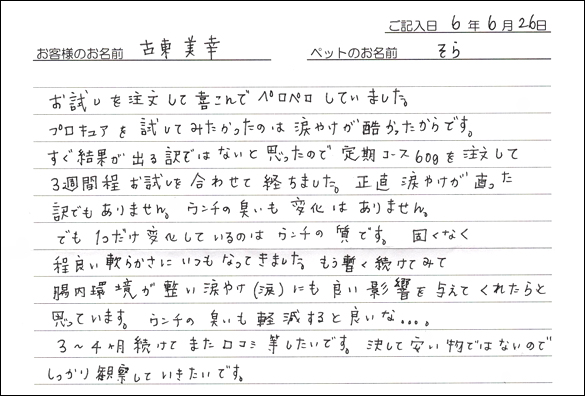 ご記入日 6年 6月 26日
お客様のお名前 古東 美幸 ペットのお名前 そら
お試しを注文して喜こんでペロペロしていました。
プロキュアを試してみたかったのは涙やけが酷かったからです。
すぐ結果が出る訳ではないと思ったので定期コース60gを注文して
3週間程お試しを合わせて経ちました。正直涙やけが直った
訳でもありません。ウンチの臭いも変化はありません。
でも1つだけ変化しているのはウンチの質です。固くなく
程良い軟らかさにいつもなってきました。もう暫く続けてみて
腸内環境が整い涙やけ(涙)にも良い影響を与えてくれたらと
思っています。ウンチの臭いも軽減すると良いな...。
3〜4ヶ月続けてまた口コミ等したいです。決して安い物ではないので
しっかり観察していきたいです。